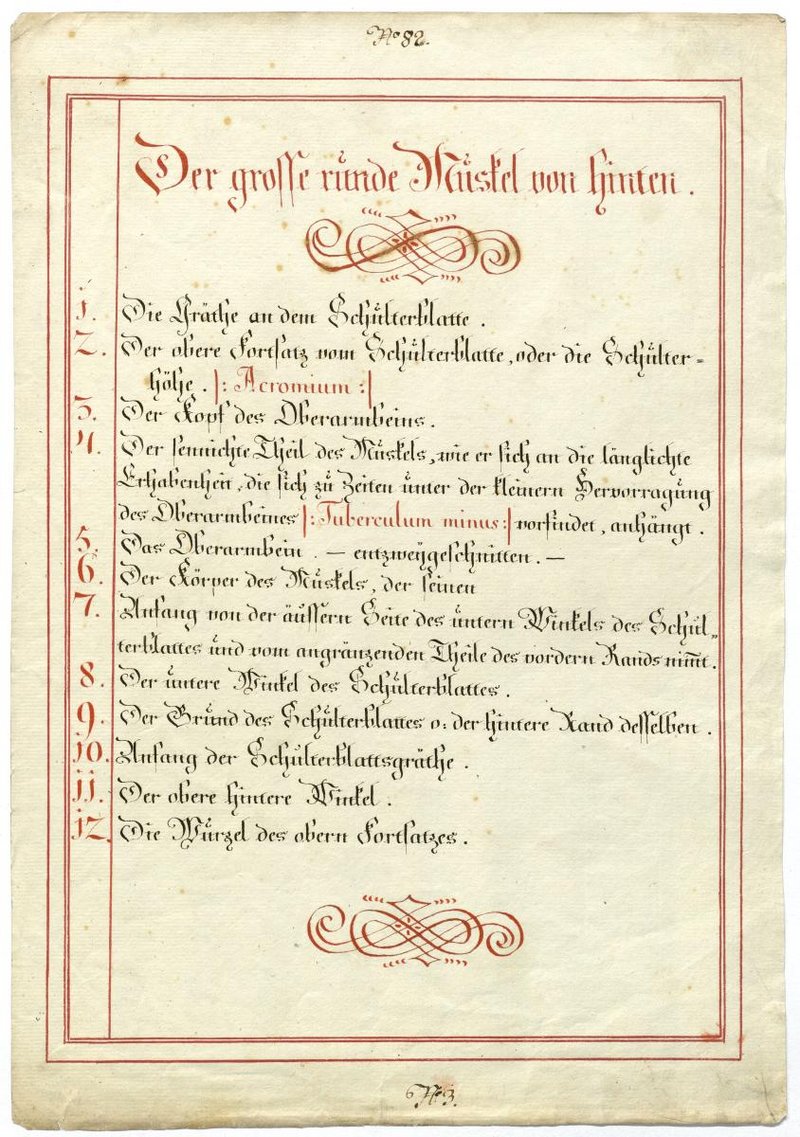 No 82.
Der grosse runde Muskel von hinten.
1. Die Gräthe an dem Schulterblatte.
2. Der obere Fortsatz vom Schulterblatte, oder die Schulter=
höhe. |: Acromium :|
3. Der Kopf des Oberarmbeins.
4. Der sennichte Theil des Muskels, wie er sich an die länglichte
Erhabenheit, die sich zu Zeiten unter der kleinern Hervorragung
des Oberarmbeines |: Tuberculum minus :| vorfindet, anhängt.
5. Das Oberarmbein. — entzweygeschnitten. —
6. Der Körper des Muskels, der seinen
7. Anfang von der äussern Seite des untern Winkels des Schul„
terblattes und vom angränzenden Theile des vordern Rands nim̅t.
8. Der untere Winkel des Schulterblattes.
9. Der Grund des Schulterblattes o: der hintere Rand desselben.
10. Anfang der Schulterblattsgräthe.
11. Der obere hintere Winkel.
12. Die Wurzel des obern Fortsatzes.
No 3.